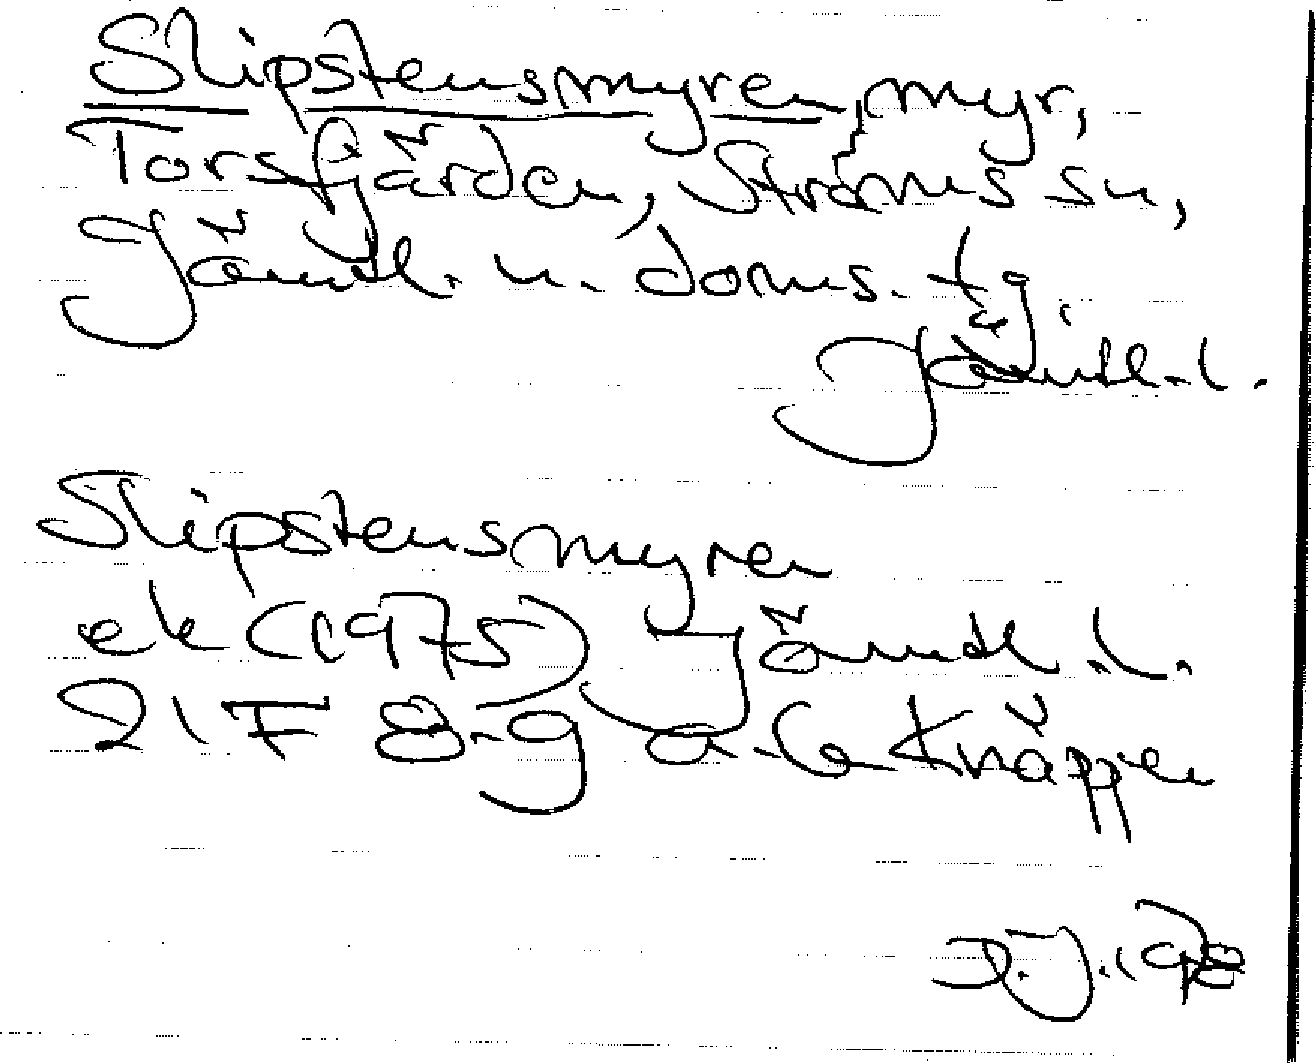 Slipstensmyren, myr,
Torsfjärden, Ströms sn,
Jämtl. n. doms. tg
Jämtl. l.
Slipstensmyren
ek (1975) Jämtl. l.
21F 8-g a-b Knäppen
D.J. 1978